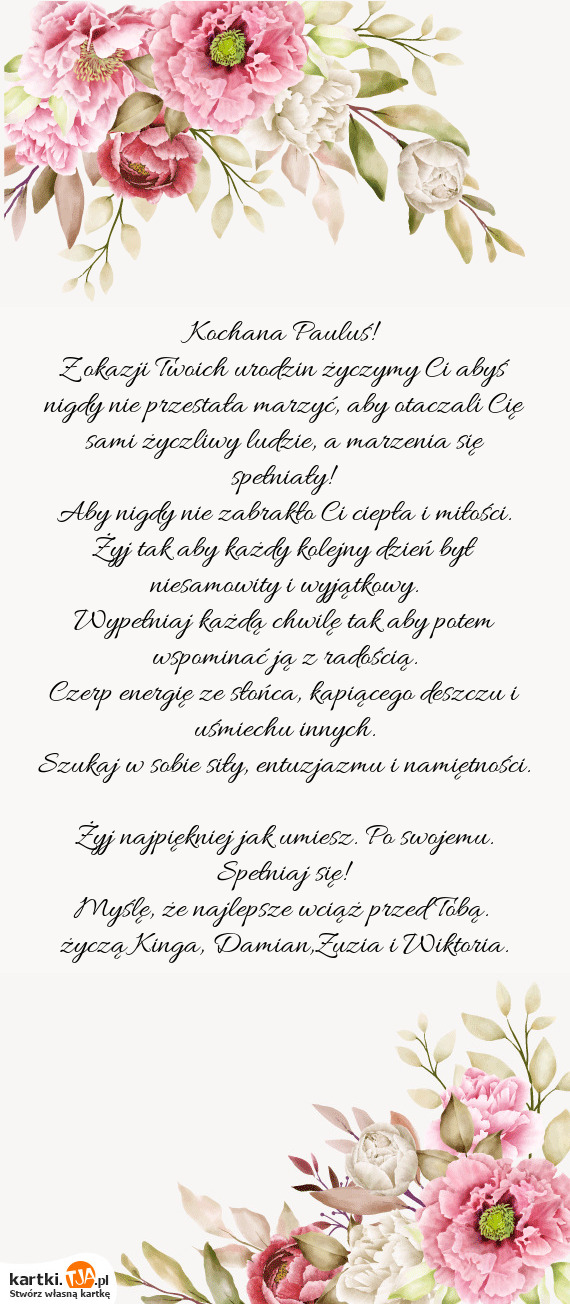 Kochana Pauluś!
Z okazji Twoich urodzin życzymy Ci abyś
nigdy nie przestała marzyć, aby otaczali Cię
sami życzliwy ludzie, a marzenia się
spełniały!
Aby nigdy nie zabrakło Ci ciepła i miłości.
Żyj tak aby każdy kolejny dzień był
niesamowity i wyjątkowy.
Wypełniaj każdą chwilę tak aby potem
wspominać ją z radością.
Czerp energię ze słońca, kapiącego deszczu i
uśmiechu innych.
Szukaj w sobie siły, entuzjazmu i namiętności.
Żyj najpiękniej jak umiesz. Po swojemu.
Spełniaj się!
Myślę, że najlepsze wciąż przed Tobą.
życzą Kinga, Damian,Zuzia i Wiktoria.
kartki.TJA.pl
Stwórz własną kartkę